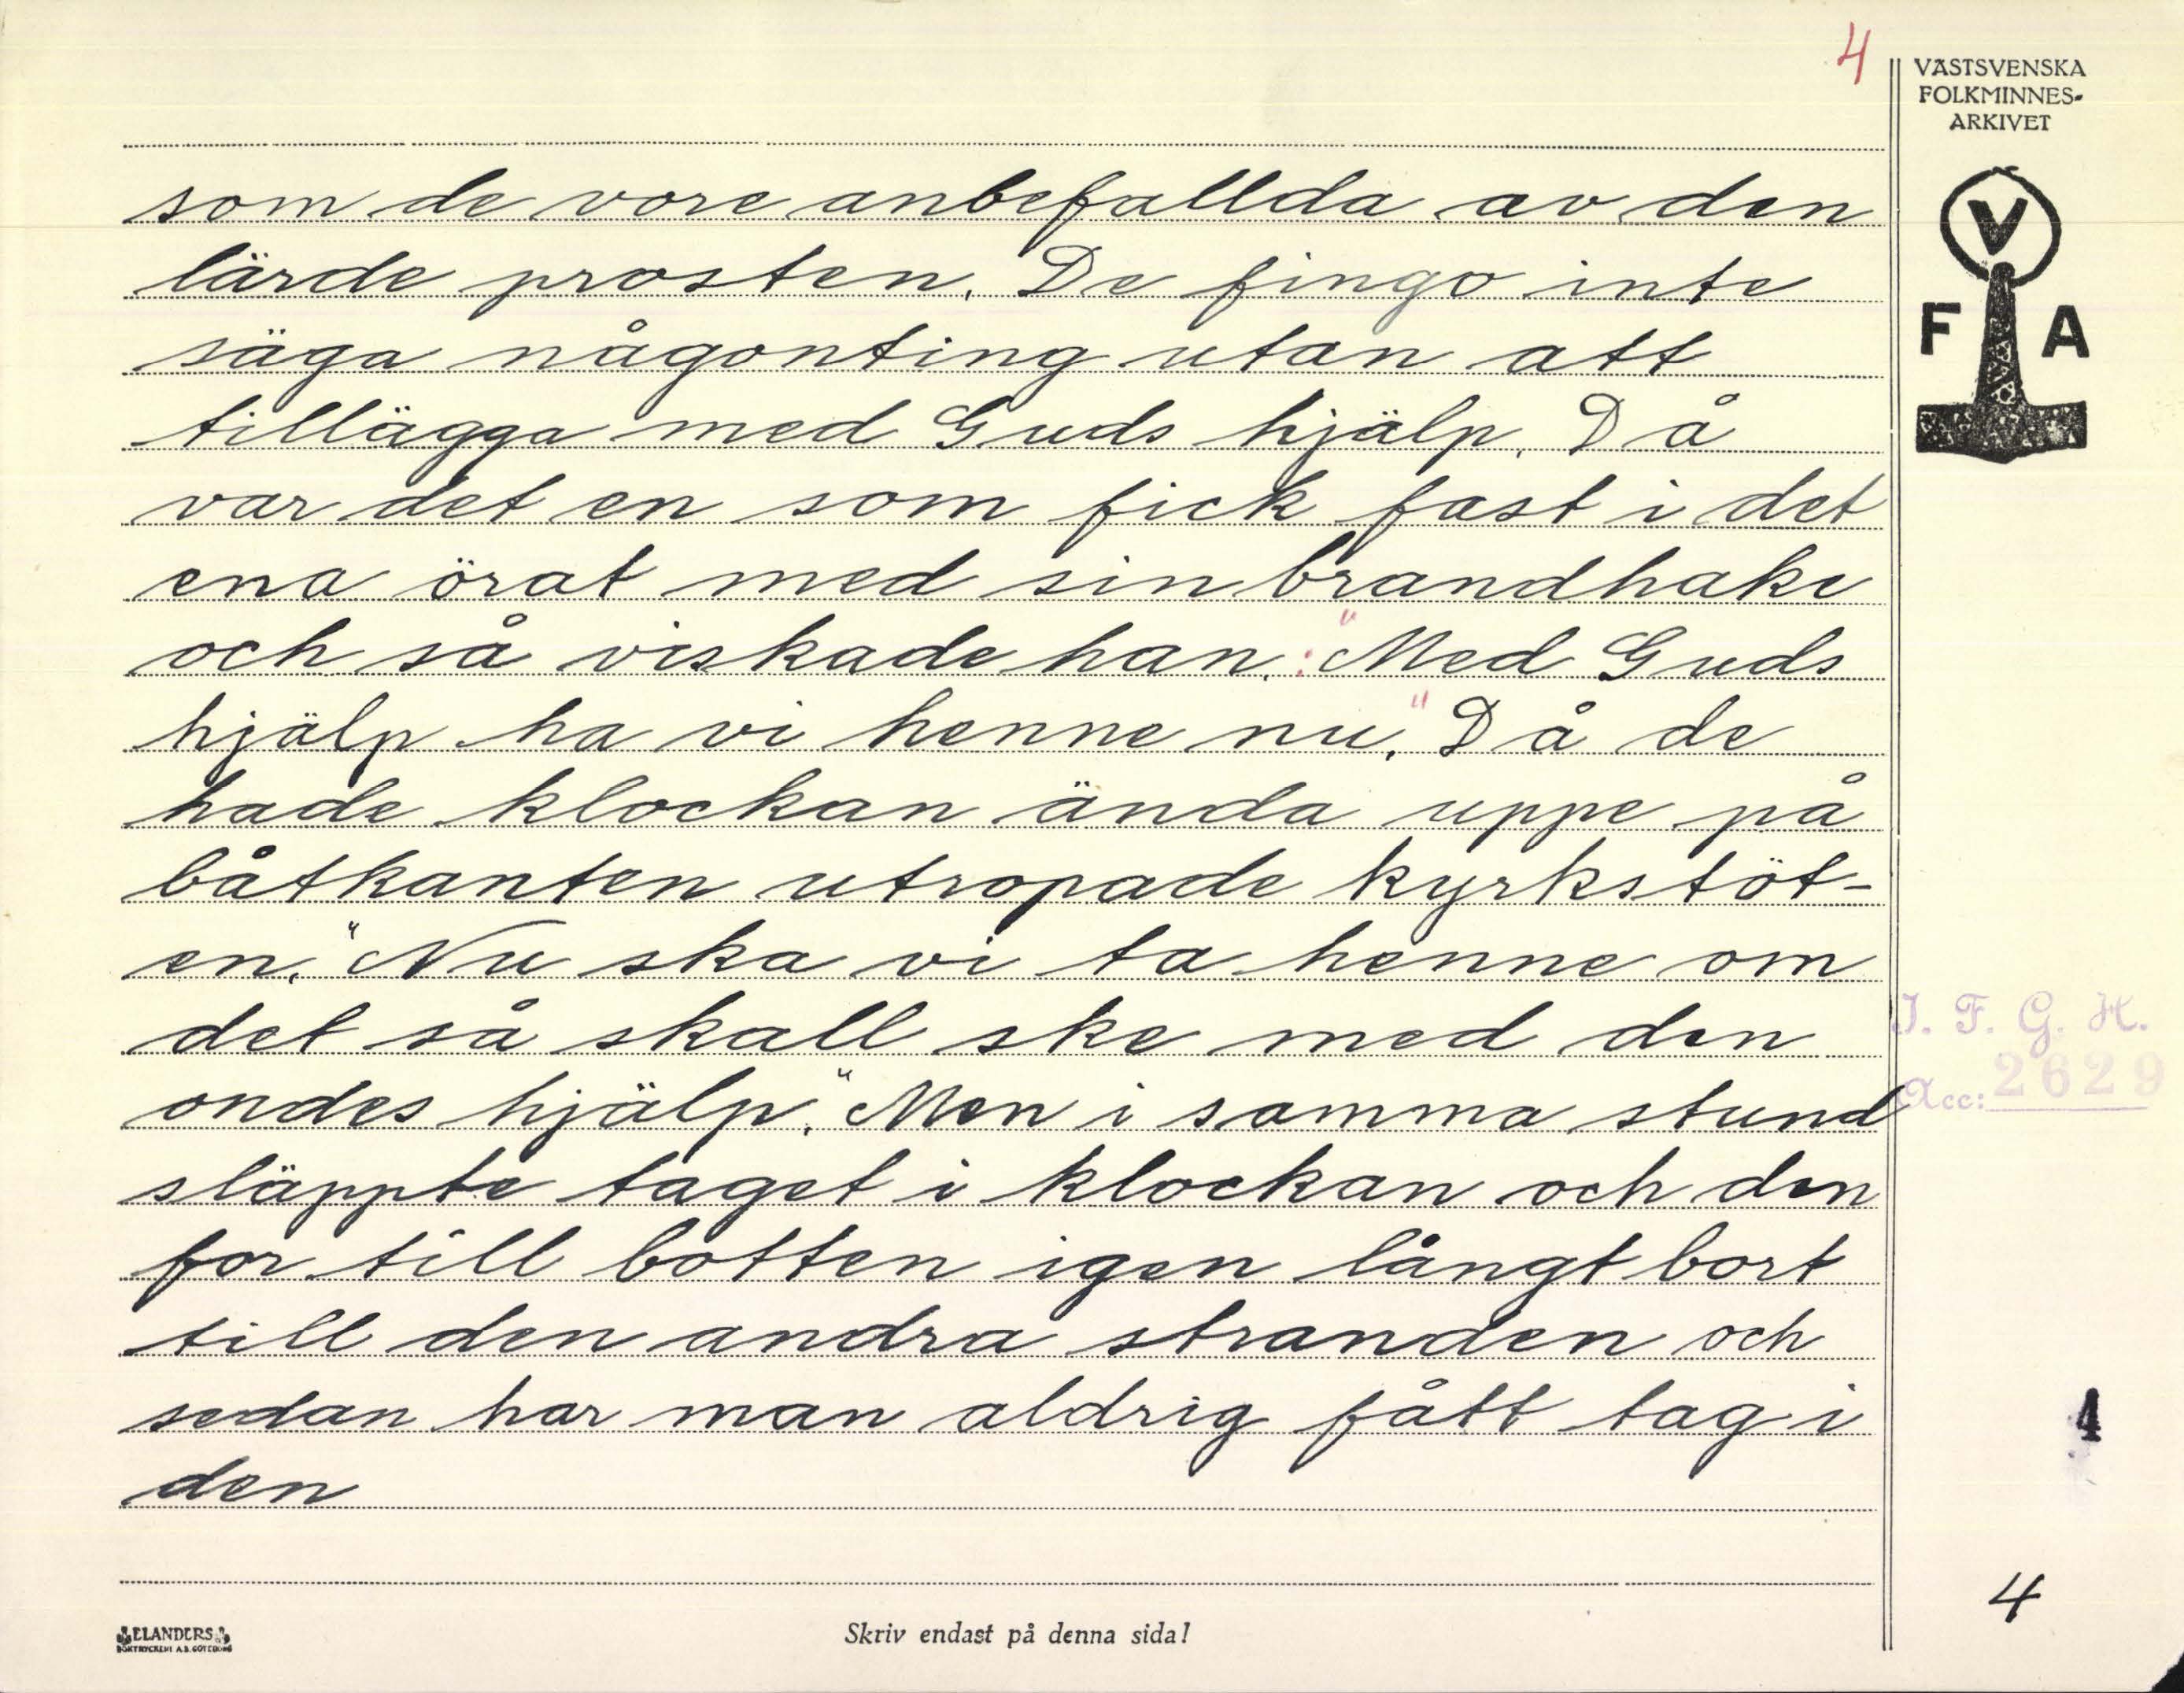 4
VÄSTSVENSKA
FOLKMINNES-
ARKIVET
V
F A
som de vore anbefallda av den
lärde prosten. De fingo inte
säga någonting utan att
tillägga med Guds hjälp. Då
var det en som fick fast i det
ena örat med sin brandhake
och så viskade han.: "Med Guds
hjälp ha vi henne nu." Då de
hade klockan ända uppe på
båtkanten utropade kyrkstöt-
en. "Nu ska vi ta henne om
det så skall ske med den
ondes hjälp." Men i samma stund
släppte taget i klockan och den
for till botten igen långt bort
till den andra stranden och
sedan har man aldrig fått tag i
den
I. F. G. H.
Acc: 2629
4
4
ELANDERS
BOKTRYCKERI A.B. GÖTEBORG
Skriv endast på denna sida!